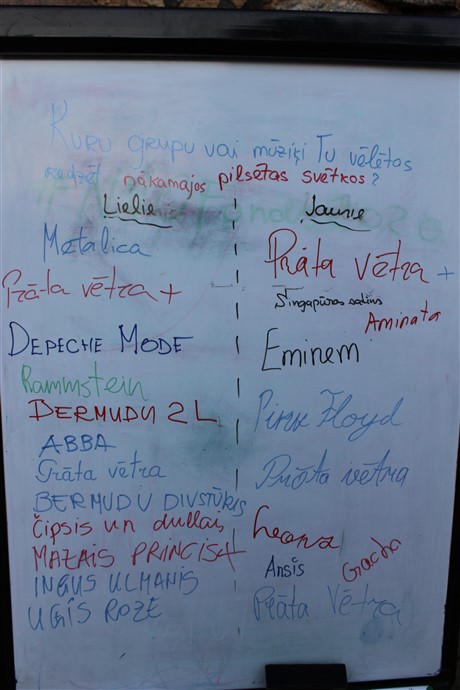 Kuru grupu vai mūziķi Tu vēlētos
redzēt nākamajos pilsētas svētkos?
Lielie
Metalica
Prāta vētra +
DEPECHE MODE
Rammstein
BERMUDU 2 L
ABBA
Prāta vētra
BERMUDU DIVSTŪRIS
Čipsis un dullais
MAZAIS PRINCIS +
INGUS ULMANIS
UGIS ROZE
Jaunie
Prāta vētra +
Singapūras satīns
Aminata
Eminem
Pink Floyd
Prāta vētra
Ansis
Gacho
Prāta Vētra